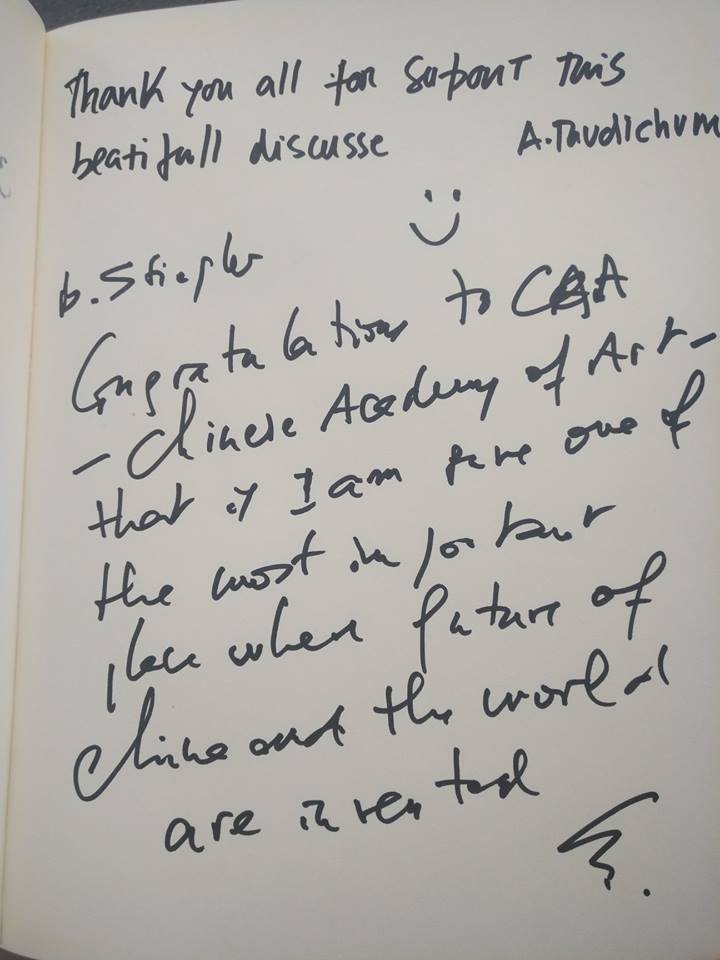 Thank you all for suport this
beatifull discusse A.Thudichum
b. Stiegler
Congratulations to CAA
- Chinese Academy of Art -
that is I am sure one of
the most important
place where future of
China and the world
are invented